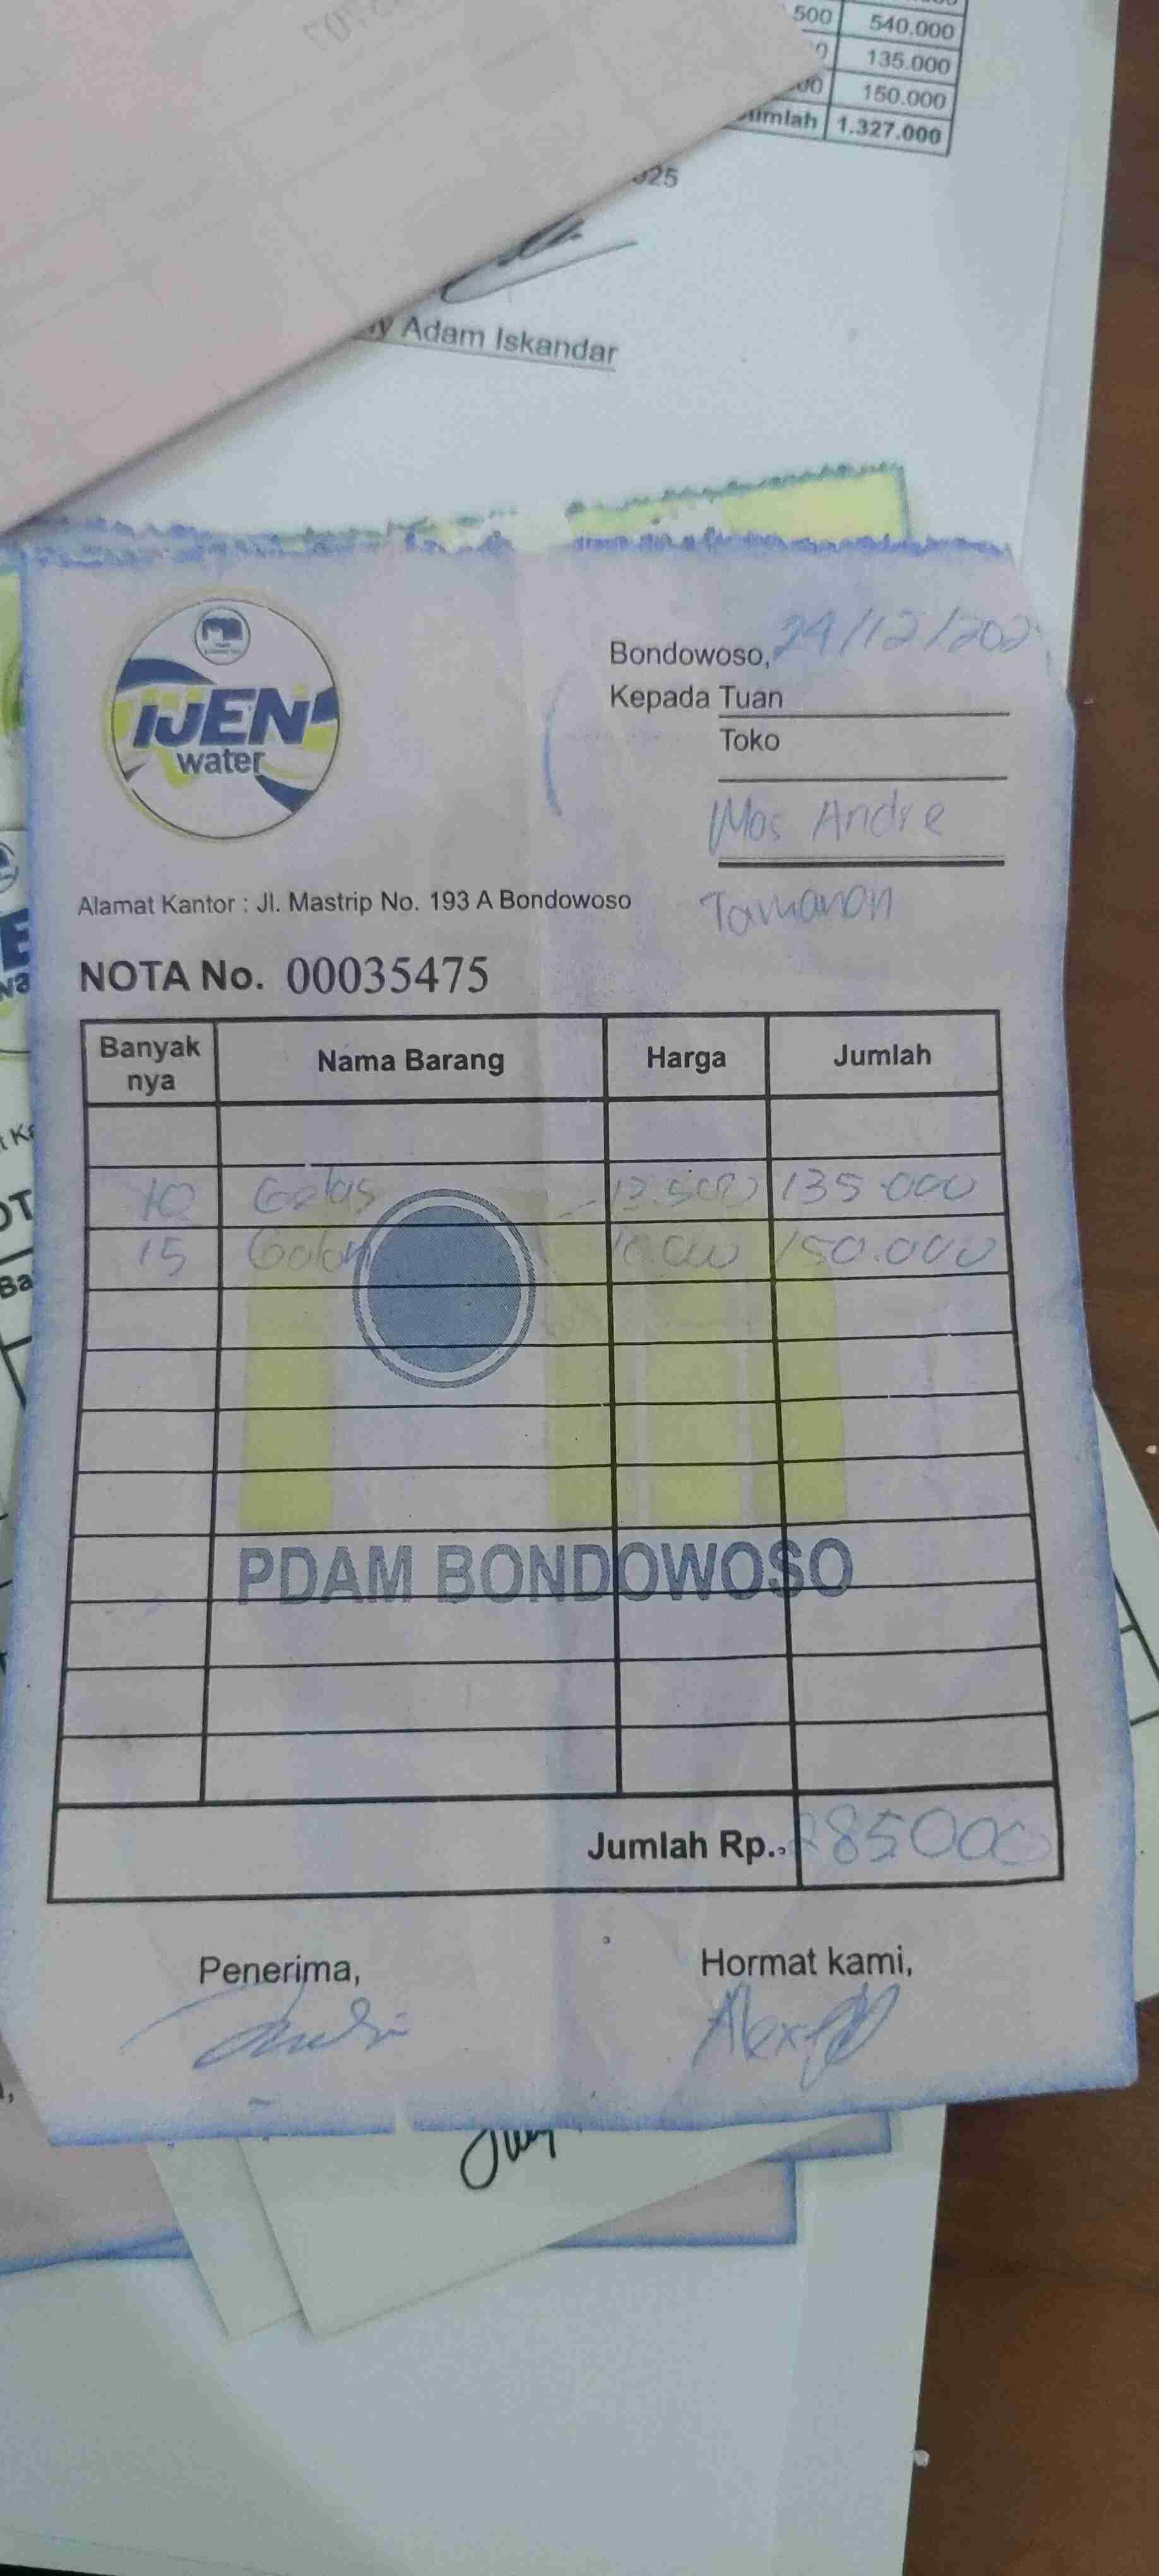 500 540.000
135.000
150.000
Jumlah 1.327.000
Adam Iskandar
IJEN
water
Bondowoso, 24/12/202
Kepada Tuan
Toko
Mas Andre
Tamanan
Alamat Kantor : Jl. Mastrip No. 193 A Bondowoso
NOTA No. 00035475
Banyak nya Nama Barang Harga Jumlah
10 Gelas 13.500 135.000
15 Galon 10.000 150.000
PDAM BONDOWOSO
Jumlah Rp. 285000
Penerima, Hormat kami,